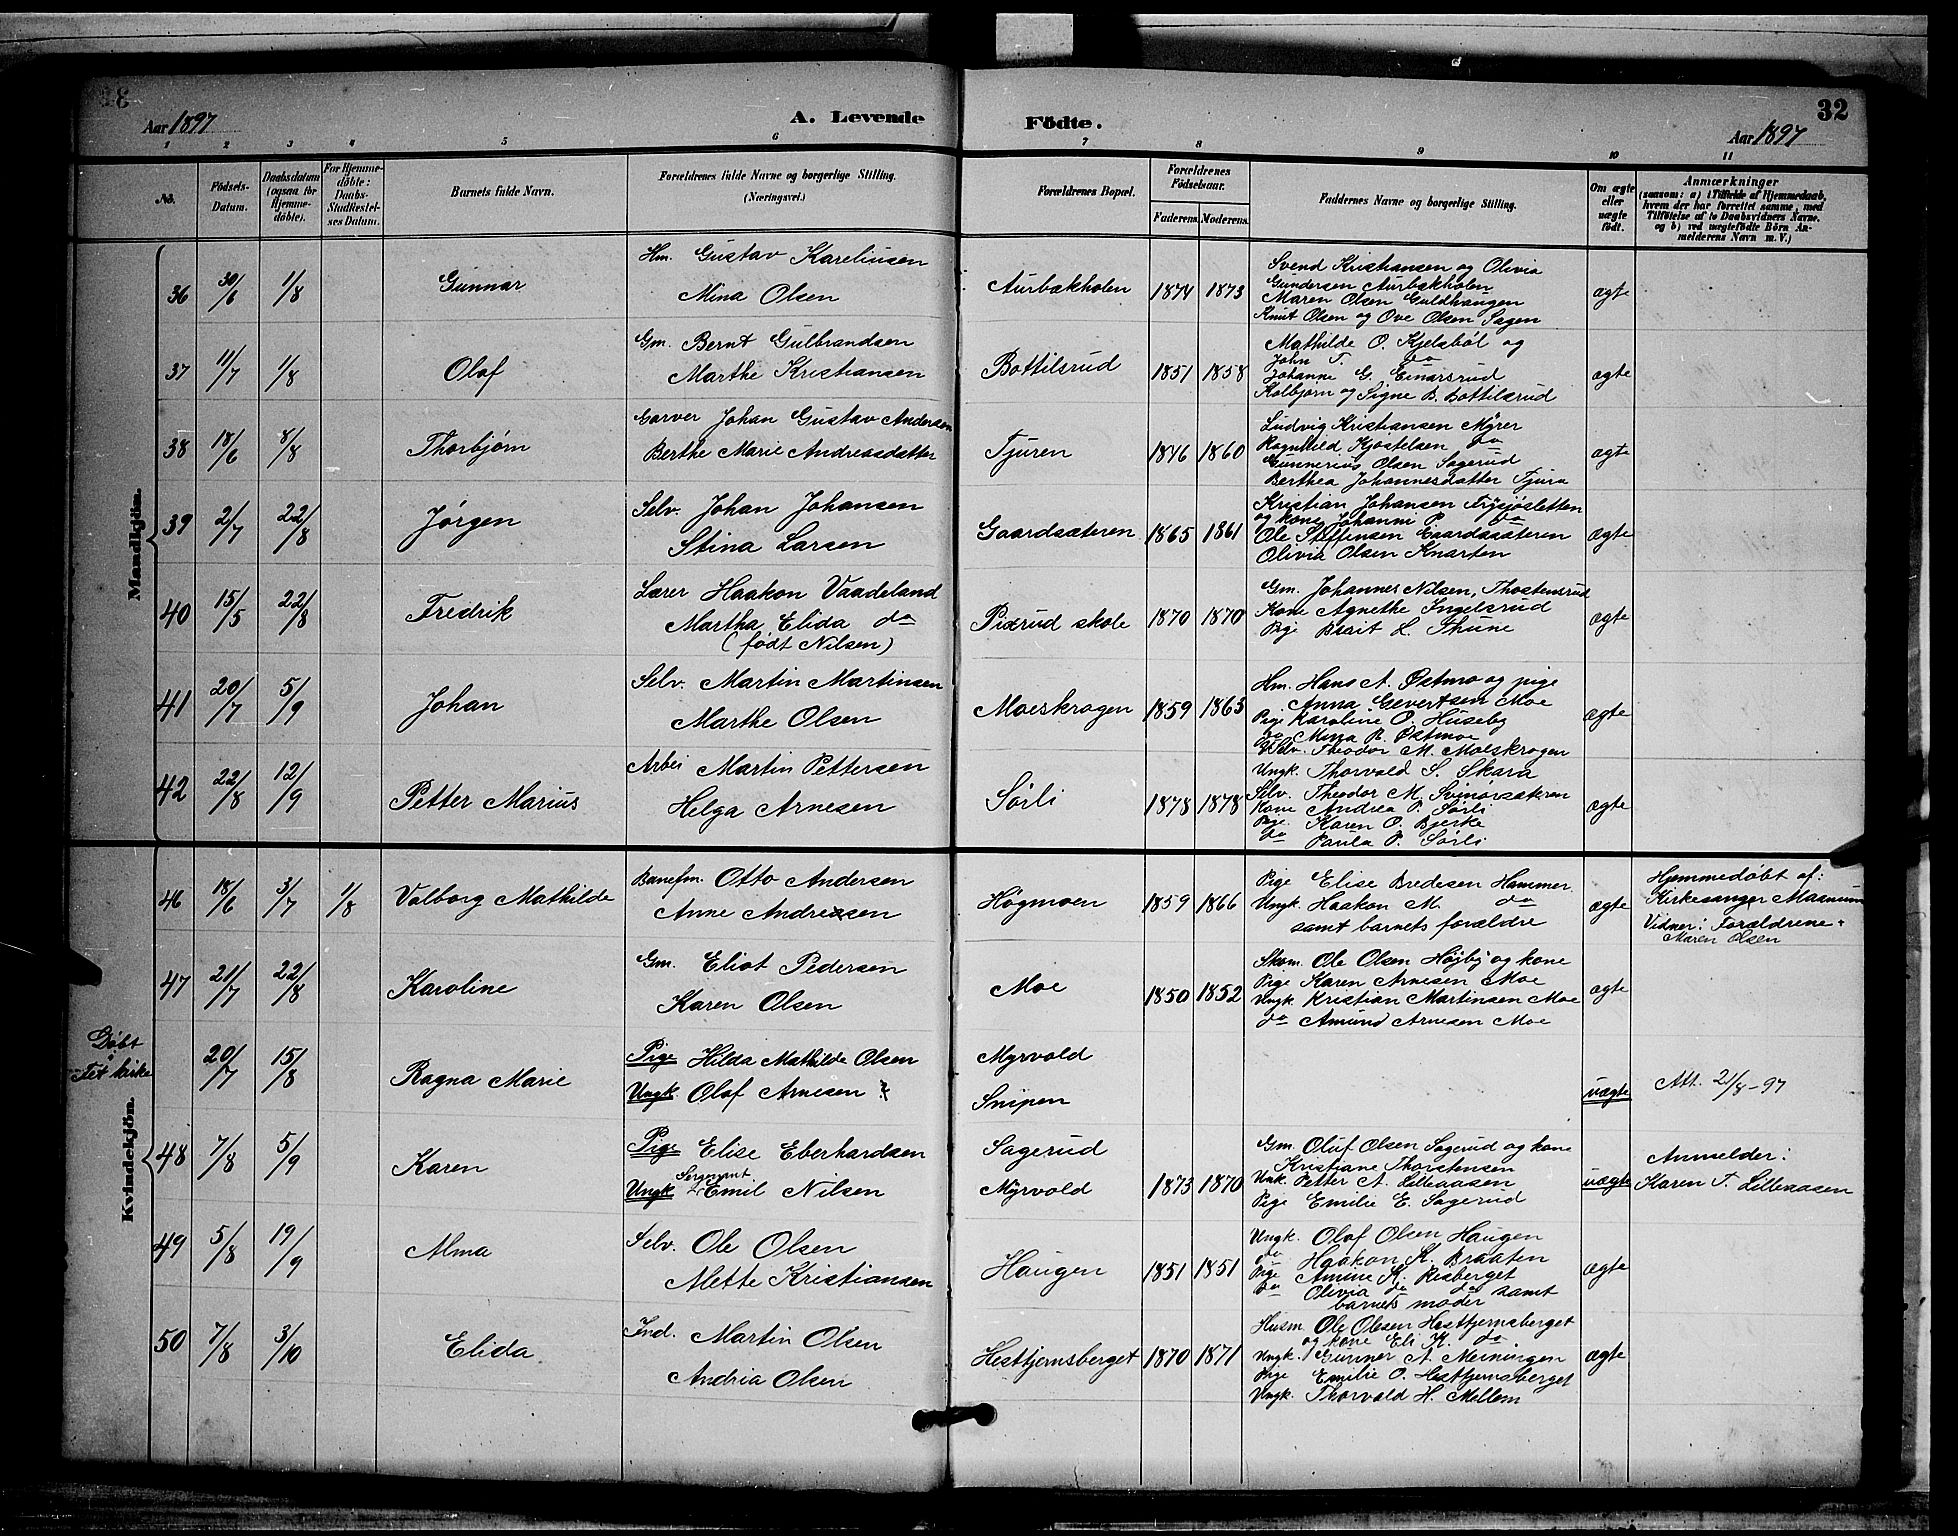 Aar 1897
A. Levende
Fødte.
32
Aar 1897
1 2 3 4 5 6 7 8 9 10 11
No.
Fødsels-
Datum.
Daabsdatum
(ogsaa for
Hjemme-
døbte).
For Hjemme-
døbte:
Daabs-
Stadfæstel-
ses Datum.
Barnets fulde Navn.
Forældrenes fulde Navne og borgerlige Stilling.
(Næringsvei.)
Forældrenes Bopæl.
Forældrenes
Fødselsaar.
Faderens.
Moderens.
Faddernes Navne og borgerlige Stilling.
Om ægte
eller
uægte
født.
Anmærkninger
(saasom: a) i Tilfælde af Hjemmedaab,
hvem der har forrettet samme, med
Tilføielse af to Daabsvidners Navne,
og b) ved uægtefødte Børn An-
melderens Navn m. V.)
Mandkjøn.
36 30/6 1/8 Gunnar
Hm. Gustav Kareliusen
Mina Olsen
Aurbækholen 1874 1873
Svend Kristiansen og Olivia
Gundersen Aurbækholen
Maren Olsen Guldhaugen
Knut Olsen og Ove Olsen Sagen
ægte
37 11/7 1/8 Olaf
Gm. Bernt Gulbrandsen
Marthe Kristiansen
Bottilsrud 1851 1858
Mathilde O. Kjelsböl og
John T. do
Johanne G. Einarsrud
Kolbjørn og Signe B. Bottilsrud
ægte
38 18/6 8/8 Thorbjørn
Garver Johan Gustav Andersen
Berthe Marie Andreasdatter
Tjuren 1846 1860
Ludvig Kristiansen Myrer
Ragnhild Kjøstelsen do
Gunnerius Olsen Sagerud
Berthea Johannesdatter Tjura
ægte
39 2/7 22/8 Jørgen
Selv. Johan Johansen
Stina Larsen
Gaardsæteren 1865 1861
Kristian Johansen Frysjøsletten
og kone Johanni P. do
Ole Steffensen Gaardssæteren
Olivia Olsen Knarten
ægte
40 15/5 22/8 Fredrik
Lærer Haakon Vaadeland
Martha Elida do
(født Nilsen)
Piksrud skole 1870 1870
Gm. Johannes Nilsen, Thostensrud
Kone Agnethe Ingelsrud
Pige Brait L. Thune
ægte
41 20/7 5/9 Johan
Selv. Martin Martinsen
Marthe Olsen
Moeskrogen 1859 1863
Hm. Hans A. Østmo og pige
Anna Gevertsen Moe
Pige Karoline O. Huseby
do Mina R. Østmoe
Selv. Theodor M. Moeskrogen
ægte
42 22/8 12/9 Petter Marius
Arbei Martin Pettersen
Helga Arnesen
Sørli 1878 1878
Ungk. Thorvald S. Skara
Selv. Theodor M. Svinorsæteren
Kone Andrea P. Sørli
Pige Karen O. Bjerke
do Paula P. Sørli
ægte
Kvindekjøn.
46 18/6 3/7 1/8 Valborg Mathilde
Banefm. Otto Andersen
Anne Andreasen
Høgmoen 1859 1866
Pige Elise Bredesen Hammer
Ungk. Haakon M. do
samt barnets forældre
ægte
Hjemmedøbt af:
Kirkesanger Masmum
Vidner: Forældrene +
Maren Olsen
47 21/7 22/8 Karoline
Gm. Eliot Pedersen
Karen Olsen
Moe 1850 1852
Skom. Ole Olsen Højby og kone
Pige Karen Arnesen Moe
Ungk Kristian Martinsen Moe
do Amund Arnesen Moe
ægte
Døbt
i
Fet kirke
20/7 15/8 Ragna Marie
Pige Hilda Mathilde Olsen
Ungk. Olaf Arnesen
Myrvold
Snipen
uægte
Att. 21/8-97
48 7/8 5/9 Karen
Pige Elise Eberhardsen
Sergeant
Ungk Emil Nilsen
Sagerud
Myrvold 1873 1870
Gm. Oluf Olsen Sagerud og kone
Kristiane Thorstensen
Unk. Petter A. Lilleaasen
Pige Emilie E. Sagerud
uægte
Anmelder:
Karen T. Lilleaasen
49 5/8 19/9 Alma
Selv. Ole Olsen
Mette Kristiansen
Haugen 1851 1851
Ungk. Olaf Olsen Haugen
do Haakon K. Braaten
Pige Amine K. Risberget
do Olivia do do samt
barnets moder
ægte
50 7/8 3/10 Elida
Ind. Martin Olsen
Andria Olsen
Hestfjernsberget 1870 1871
Husm. Ole Olesen Hestfjernsberget
og kone Eli K. do
Ungk. Gunner A. Meiningen
Pige Emilie O. Hestfjernsberget
Ungk. Thorvald H. Mellem
ægte